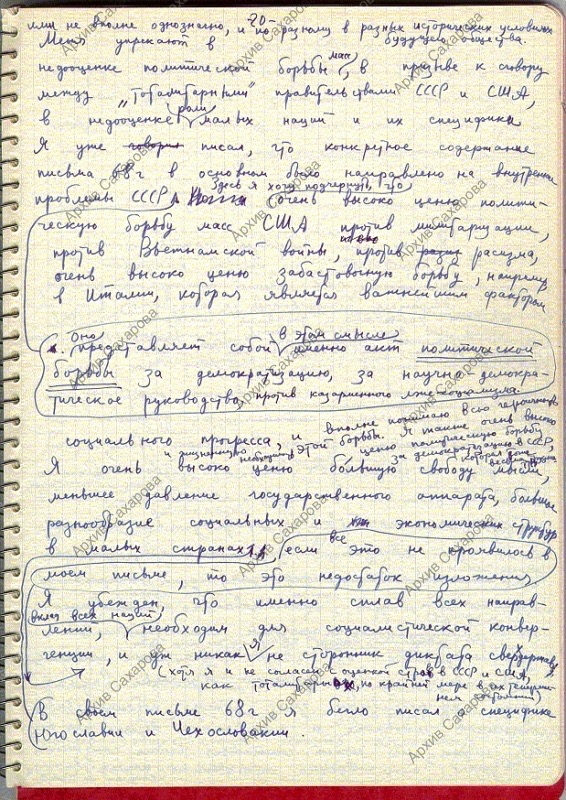 -20-
или не вполне однозначно, и по-разному в разных исторических условиях
Меня упрекают в будущего общества.
недооценке политической борьбы масс, в призыве к сговору
между „тоталитарными" правительствами СССР и США,
в недооценке роли малых наций и их специфики
Я уже говорил писал, что конкретное содержание
письма 68 г в основном было направлено на внутренние
проблемы СССР. Здесь я хочу подчеркнуть, что
очень высоко ценю полити-
ческую борьбу масс США против милитаризации,
против Вьетнамской войны, против расизма,
очень высоко ценю забастовочную борьбу, например
в Италии, которая является важнейшим фактором
Оно представляет собой в этом смысле именно акт политической
борьбы за демократизацию, за научно-демокра-
тическое руководство, против казарменного лже-социализма.
социального прогресса, и вполне понимаю всю героичность
и жизненную необходимость этой борьбы. Я также очень высоко
ценю политическую борьбу
за демократизацию в СССР,
Я очень высоко ценю большую свободу мысли,
меньшее давление государственного аппарата, большее
разнообразие социальных и экономических структур
в малых странах, если все это не проявилось в
моем письме, то это недостаток изложения
Я убежден, что именно сплав всех направ-
лений, вклад всех наций необходим для социалистической конвер-
генции, и уж никак я не сторонник диктата сверхдержав
(хотя я и не согласен с оценкой строя в СССР и США,
как тоталитарных, по крайней мере в их
В своем письме 68 г я бегло писал о специфике
Югославии и Чехословакии.
Архив Сахарова